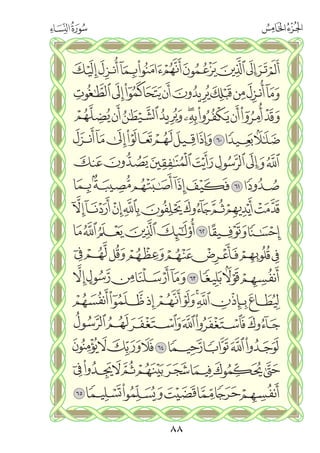 الجزء الخامس سورة النساء
ألم تر إلى الذين يزعمون أنهم ءامنوا بما أنزل إليك
وما أنزل من قبلك يريدون أن يتحاكموا إلى الطاغوت
وقد أمروا أن يكفروا به ويريد الشيطان أن يضلهم
ضلالا بعيدا ٦٠ وإذا قيل لهم تعالوا إلى ما أنزل
الله وإلى الرسول رأيت المنافقين يصدون عنك
صدودا ٦١ فكيف إذا أصابتهم مصيبة بما
قدمت أيديهم ثم جاءوك يحلفون بالله إن أردنا إلا
إحسانا وتوفيقا ٦٢ أولئك الذين يعلم الله ما
في قلوبهم فأعرض عنهم وعظهم وقل لهم في
أنفسهم قولا بليغا ٦٣ وما أرسلنا من رسول إلا
ليطاع بإذن الله ولو أنهم إذ ظلموا أنفسهم
جاءوك فاستغفروا الله واستغفر لهم الرسول
لوجدوا الله توابا رحيما ٦٤ فلا وربك لا يؤمنون
حتى يحكموك فيما شجر بينهم ثم لا يجدوا في
أنفسهم حرجا مما قضيت ويسلموا تسليما ٦٥
٨٨